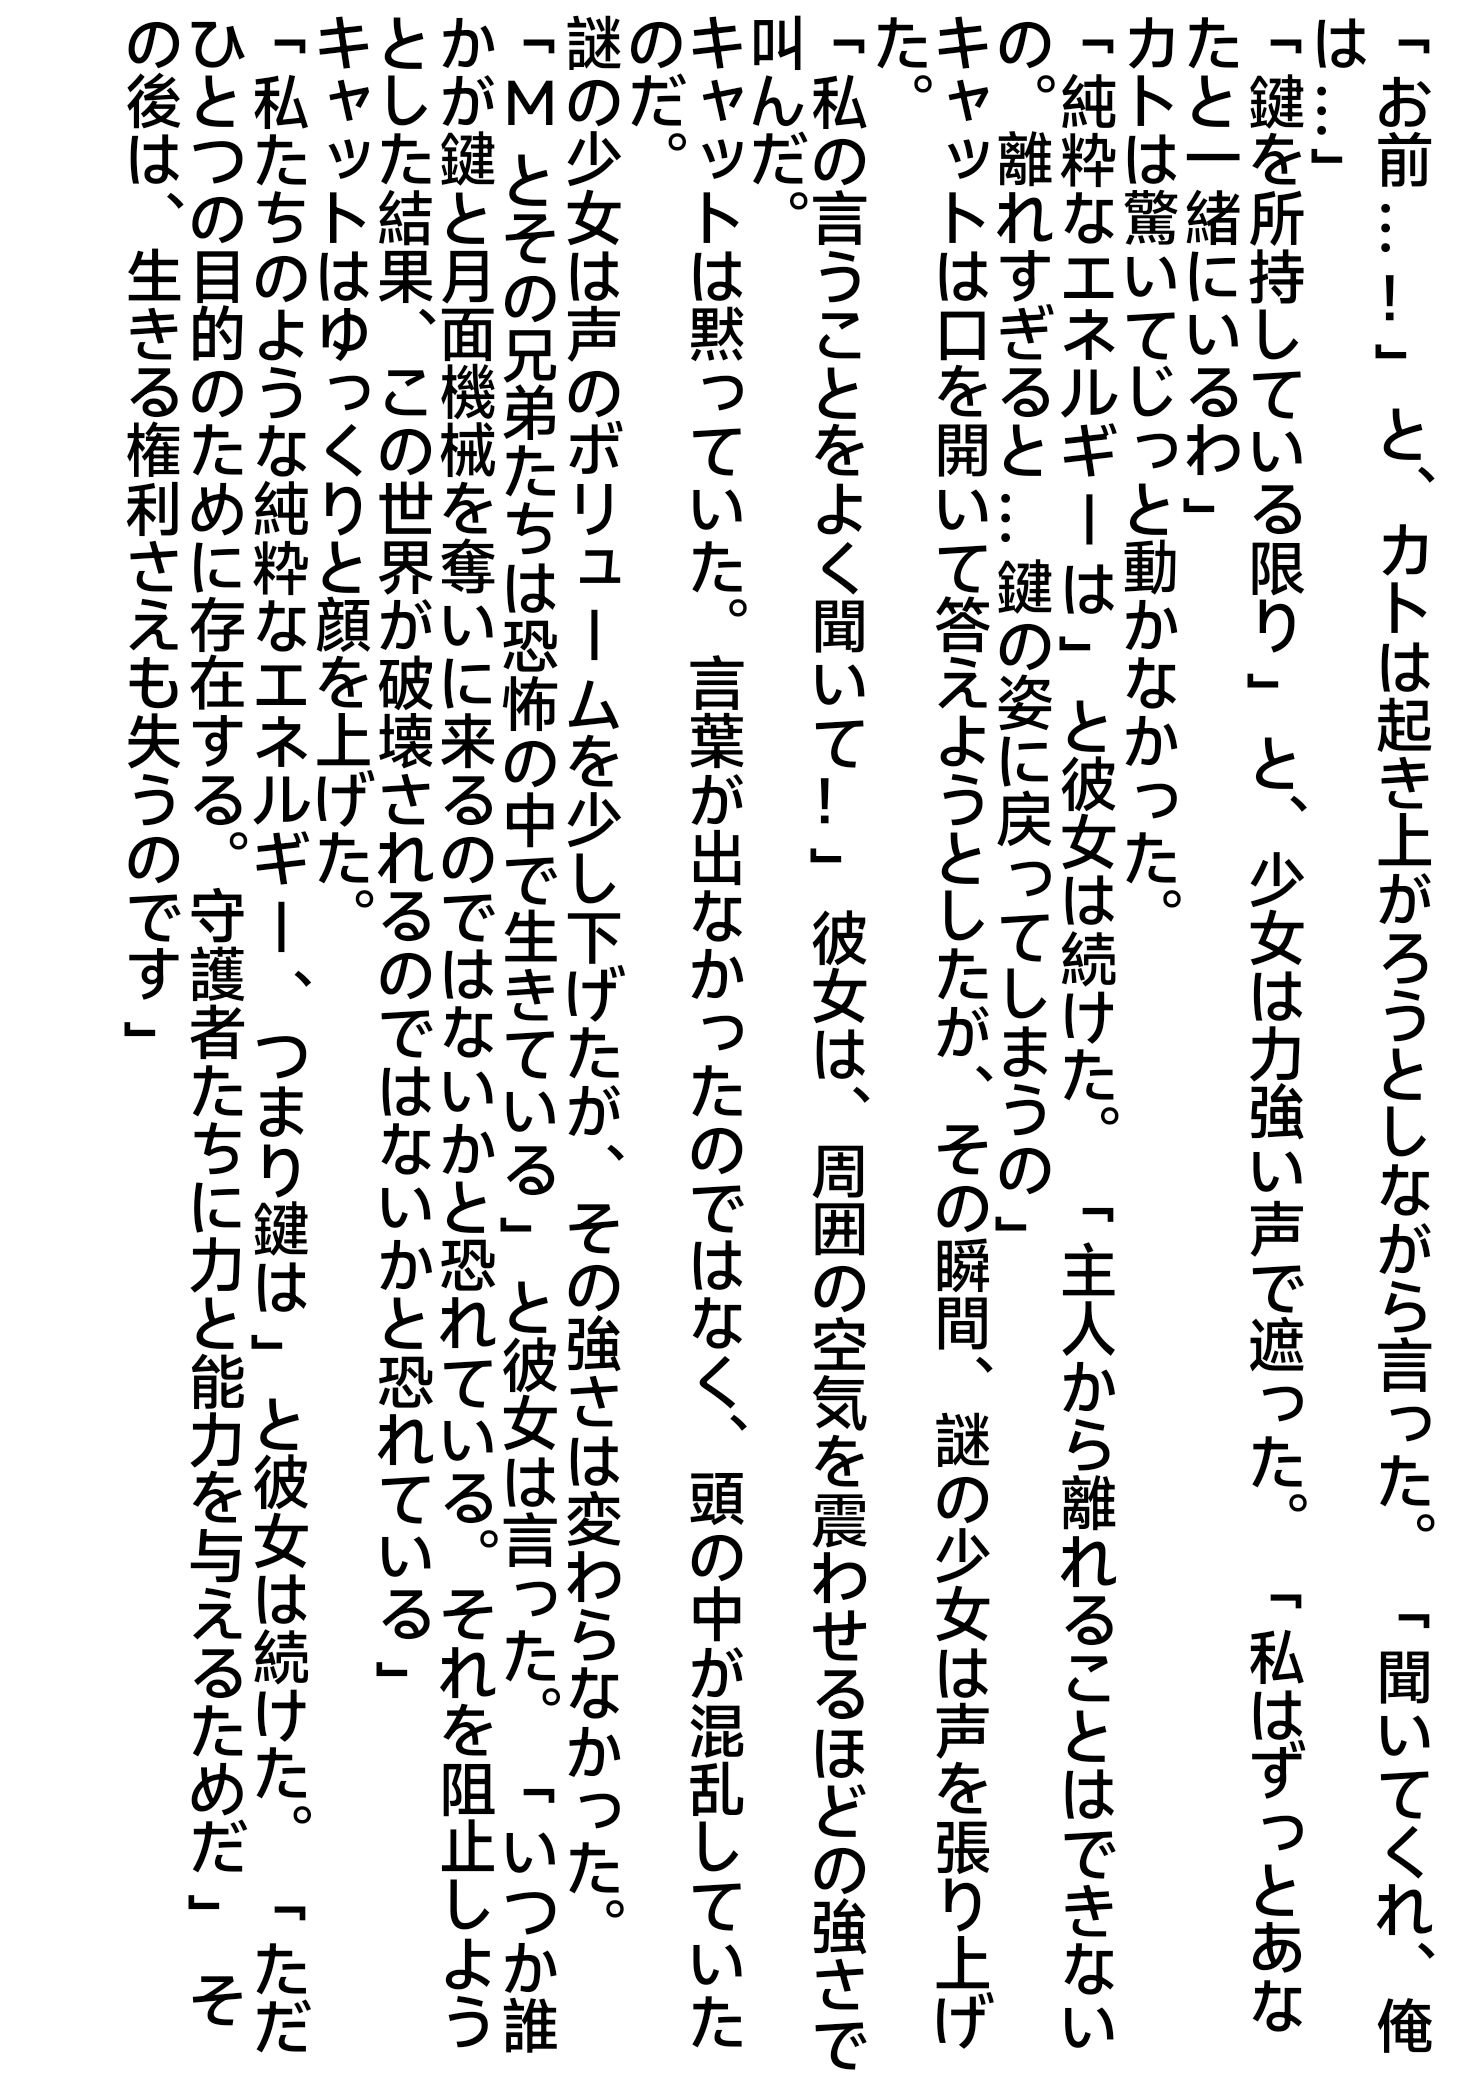 「お前…！」と、カトは起き上がろうとしながら言った。　「聞いてくれ、俺
は…」
「鍵を所持している限り」と、少女は力強い声で遮った。　「私はずっとあな
たと一緒にいるわ」
カトは驚いてじっと動かなかった。
「純粋なエネルギーは」と彼女は続けた。　「主人から離れることはできない
の。離れすぎると…鍵の姿に戻ってしまうの」
キャットは口を開いて答えようとしたが、その瞬間、謎の少女は声を張り上げ
た。
「私の言うことをよく聞いて！」彼女は、周囲の空気を震わせるほどの強さで
叫んだ。
キャットは黙っていた。言葉が出なかったのではなく、頭の中が混乱していた
のだ。
謎の少女は声のボリュームを少し下げたが、その強さは変わらなかった。
「M とその兄弟たちは恐怖の中で生きている」と彼女は言った。　「いつか誰
かが鍵と月面機械を奪いに来るのではないかと恐れている。それを阻止しよう
とした結果、この世界が破壊されるのではないかと恐れている」
キャットはゆっくりと顔を上げた。
「私たちのような純粋なエネルギー、つまり鍵は」と彼女は続けた。　「ただ
ひとつの目的のために存在する。守護者たちに力と能力を与えるためだ」　そ
の後は、生きる権利さえも失うのです」